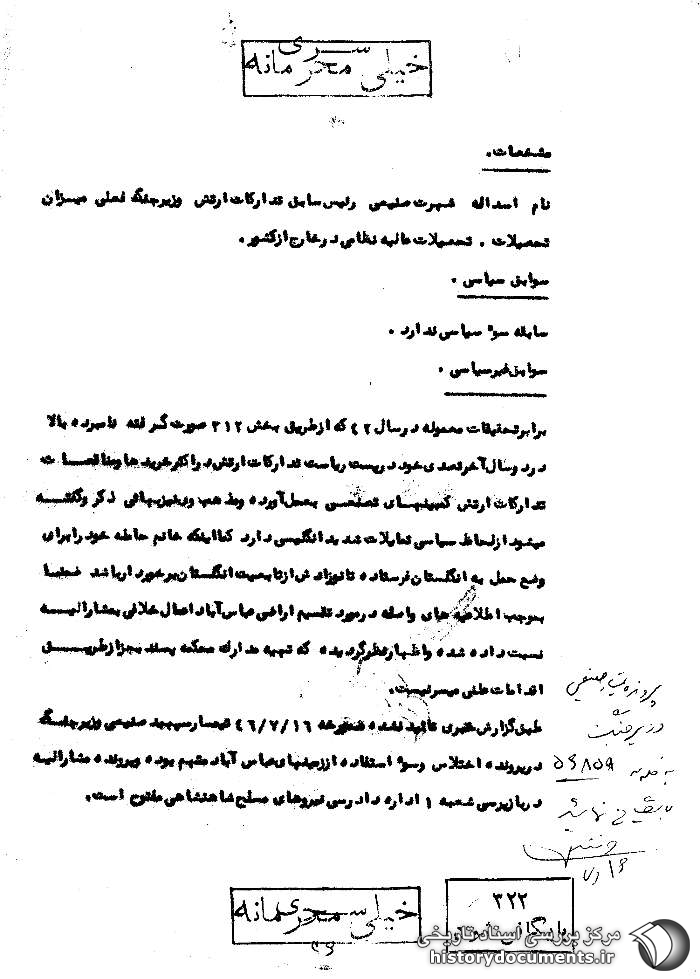 سری
خیلی محرمانه
مشخصات.
نام اسداله شهرت صنیعی رئیس سابق تدارکات ارتش وزیر جنگ فعلی میزان
تحصیلات . تحصیلات عالیه نظامی در خارج از کشور .
سوابق سیاسی .
سابقه سوء سیاسی ندارد .
سوابق غیرسیاسی .
برابر تحقیقات معموله در سال ۴۲ که از طریق بخش ۳۱۲ صورت گرفته نامبرده بالا
در دو سال آخر تصدی خود در پست ریاست تدارکات ارتش در اکثر خریدها و مناقصات
تدارکات ارتش کمیسیونهای بعمل آورده و مذهب وی نیز بهائی ذکر و گفته
میشود از لحاظ سیاسی تمایلات شدید انگلیسی دارد کما اینکه خانم حامله خود را برای
وضع حمل به انگلستان فرستاده تا نوزادش از تابعیت انگلستان برخوردار باشد ضمنا
بموجب اطلاعیه های واصله در مورد تقسیم اراضی عباس آباد اعمال خلافی بمشارالیه
نسبت داده شده و اظهارنظر گردیده که تهیه مدارک محکمه پسند بجز از طریق
اقدامات علنی میسر نیست.
طبق گزارش خبری تائید نشده مورخه ۴۶/۷/۱۶ تیمسار سپهبد صنیعی وزیر جنگ
در پرونده اختلاس و سوء استفاده از زمینهای عباس آباد متهم بوده و پرونده مشارالیه
در بازپرسی شعبه ۱ اداره دادرسی نیروهای مسلح شاهنشاهی مفتوح است.
پرونده صنیعی
وزیر جنگ
۵۶۸۵۹
۱۶/۷
سری
خیلی محرمانه
۳۲۲
بایگانی شود
مرکز بررسی اسناد تاریخی
historydocuments.ir